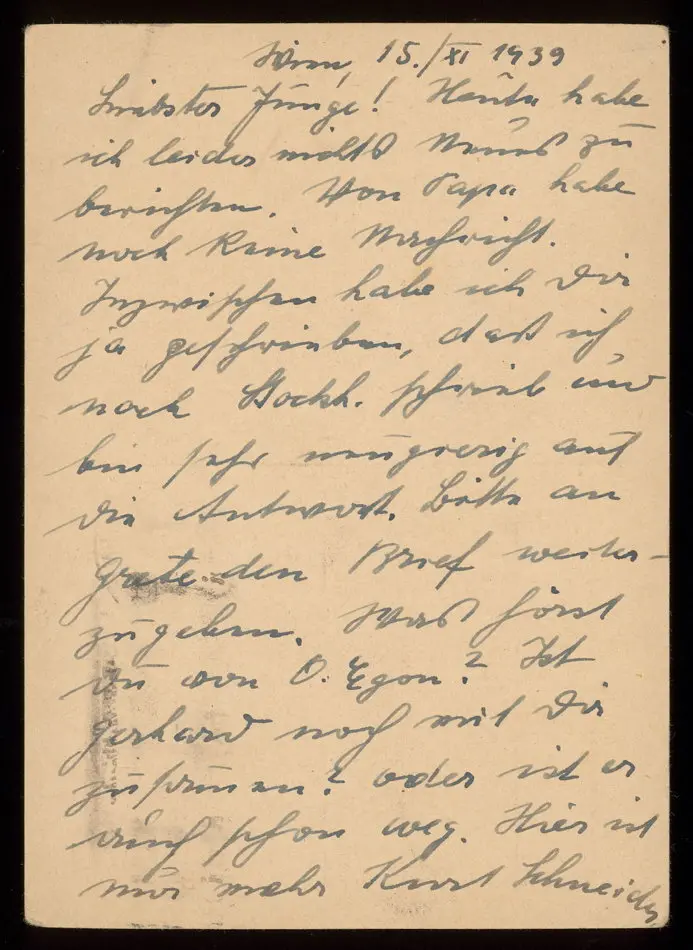 Wien, 15./XI 1939
Liebster Junge! Heute habe
ich leider nichts Neues zu
berichten. Von Papa habe
noch keine Nachricht.
Inzwischen habe ich Dir
ja geschrieben, daß ich
nach Stockh. schrieb und
bin sehr neugierig auf
die Antwort. Bitte an
Grete den Brief weiter-
zugeben. Was hörst
Du von O. Egon? Ist
Gerhard noch mit Dir
zusammen? oder ist er
auch schon weg. Hier ist
nur mehr Kurt Schneider,